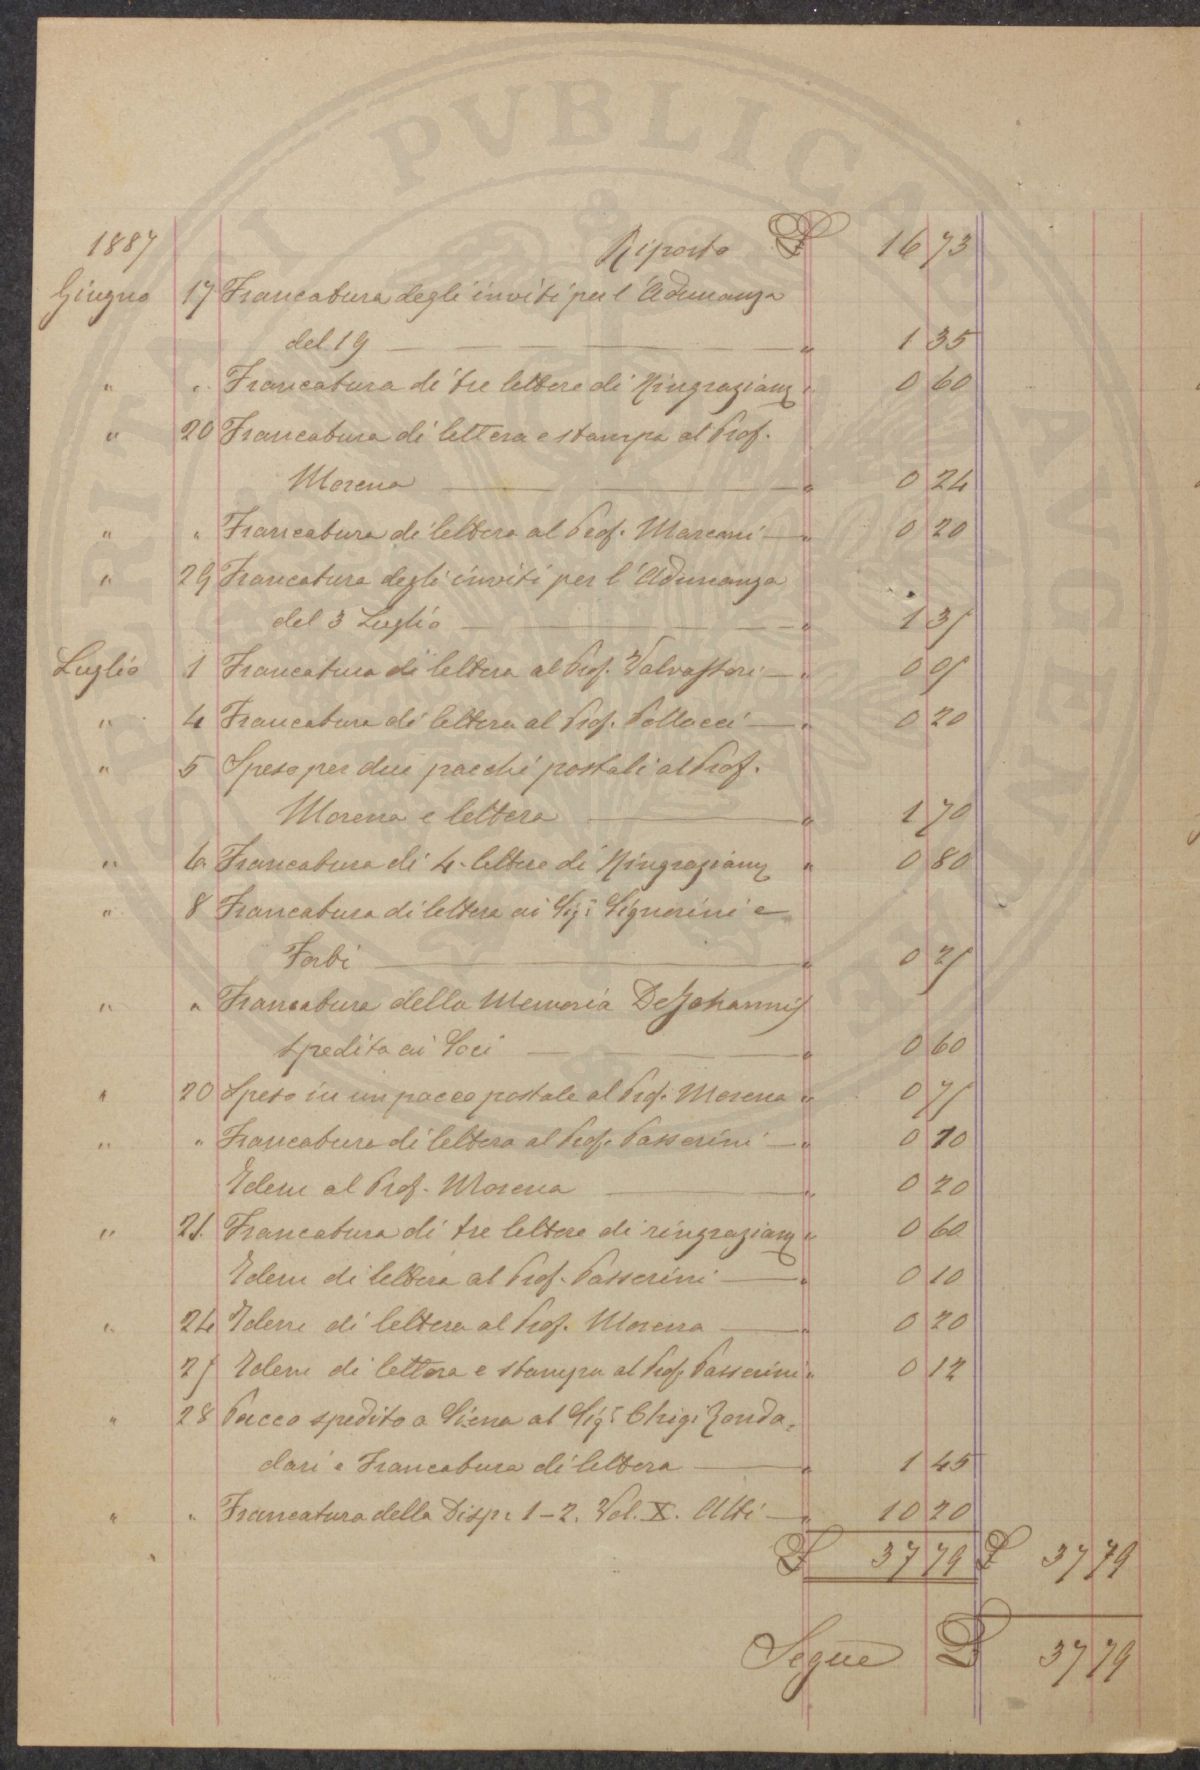 PROSPERITATI PVBLICAE AVGENDAE
1887 Riporto £ 16 73
Giugno 17 Francatura degli inviti per l'Adunanza
del 19 — " 1 35
" " Francatura di tre lettere di Ringraziam " 0 60
" 20 Francatura di lettera e stampa al Prof.
Morena — " 0 24
" " Francatura di lettera al Prof. Marconi — " 0 20
" 29 Francatura degli inviti per l'Adunanza
del 3 Luglio — " 1 35
Luglio 1 Francatura di lettera al Prof. Valvassori — " 0 05
" 4 Francatura di lettera al Prof. Pollacci — " 0 20
" 5 Speso per due pacchi postali al Prof.
Morena e lettera — " 1 70
" 6 Francatura di 4 lettere di Ringraziam " 0 80
" 8 Francatura di lettera ai Sigi Signorini e
Forbi — " 0 25
" " Francatura della Memoria De Johannis
spedita ai Soci — " 0 60
" 20 Speso in un pacco postale al Prof. Morena " 0 75
" " Francatura di lettera al Prof. Passerini — " 0 10
Idem al Prof. Morena — " 0 20
" 21. Francatura di tre lettere di ringraziam " 0 60
Idem di lettera al Prof. Passerini — " 0 10
" 24 Idem di lettera al Prof. Morena — " 0 20
25 Idem di lettera e stampa al Prof. Passerini " 0 12
" 28 Pacco spedito a Siena al Sigr Chigi Zonda=
dari e Francatura di lettera — " 1 45
" " Francatura della Disp. 1-2. Vol. X. Atti — " 10 20
£ 37 79 £ 37 79
Segue £ 37 79